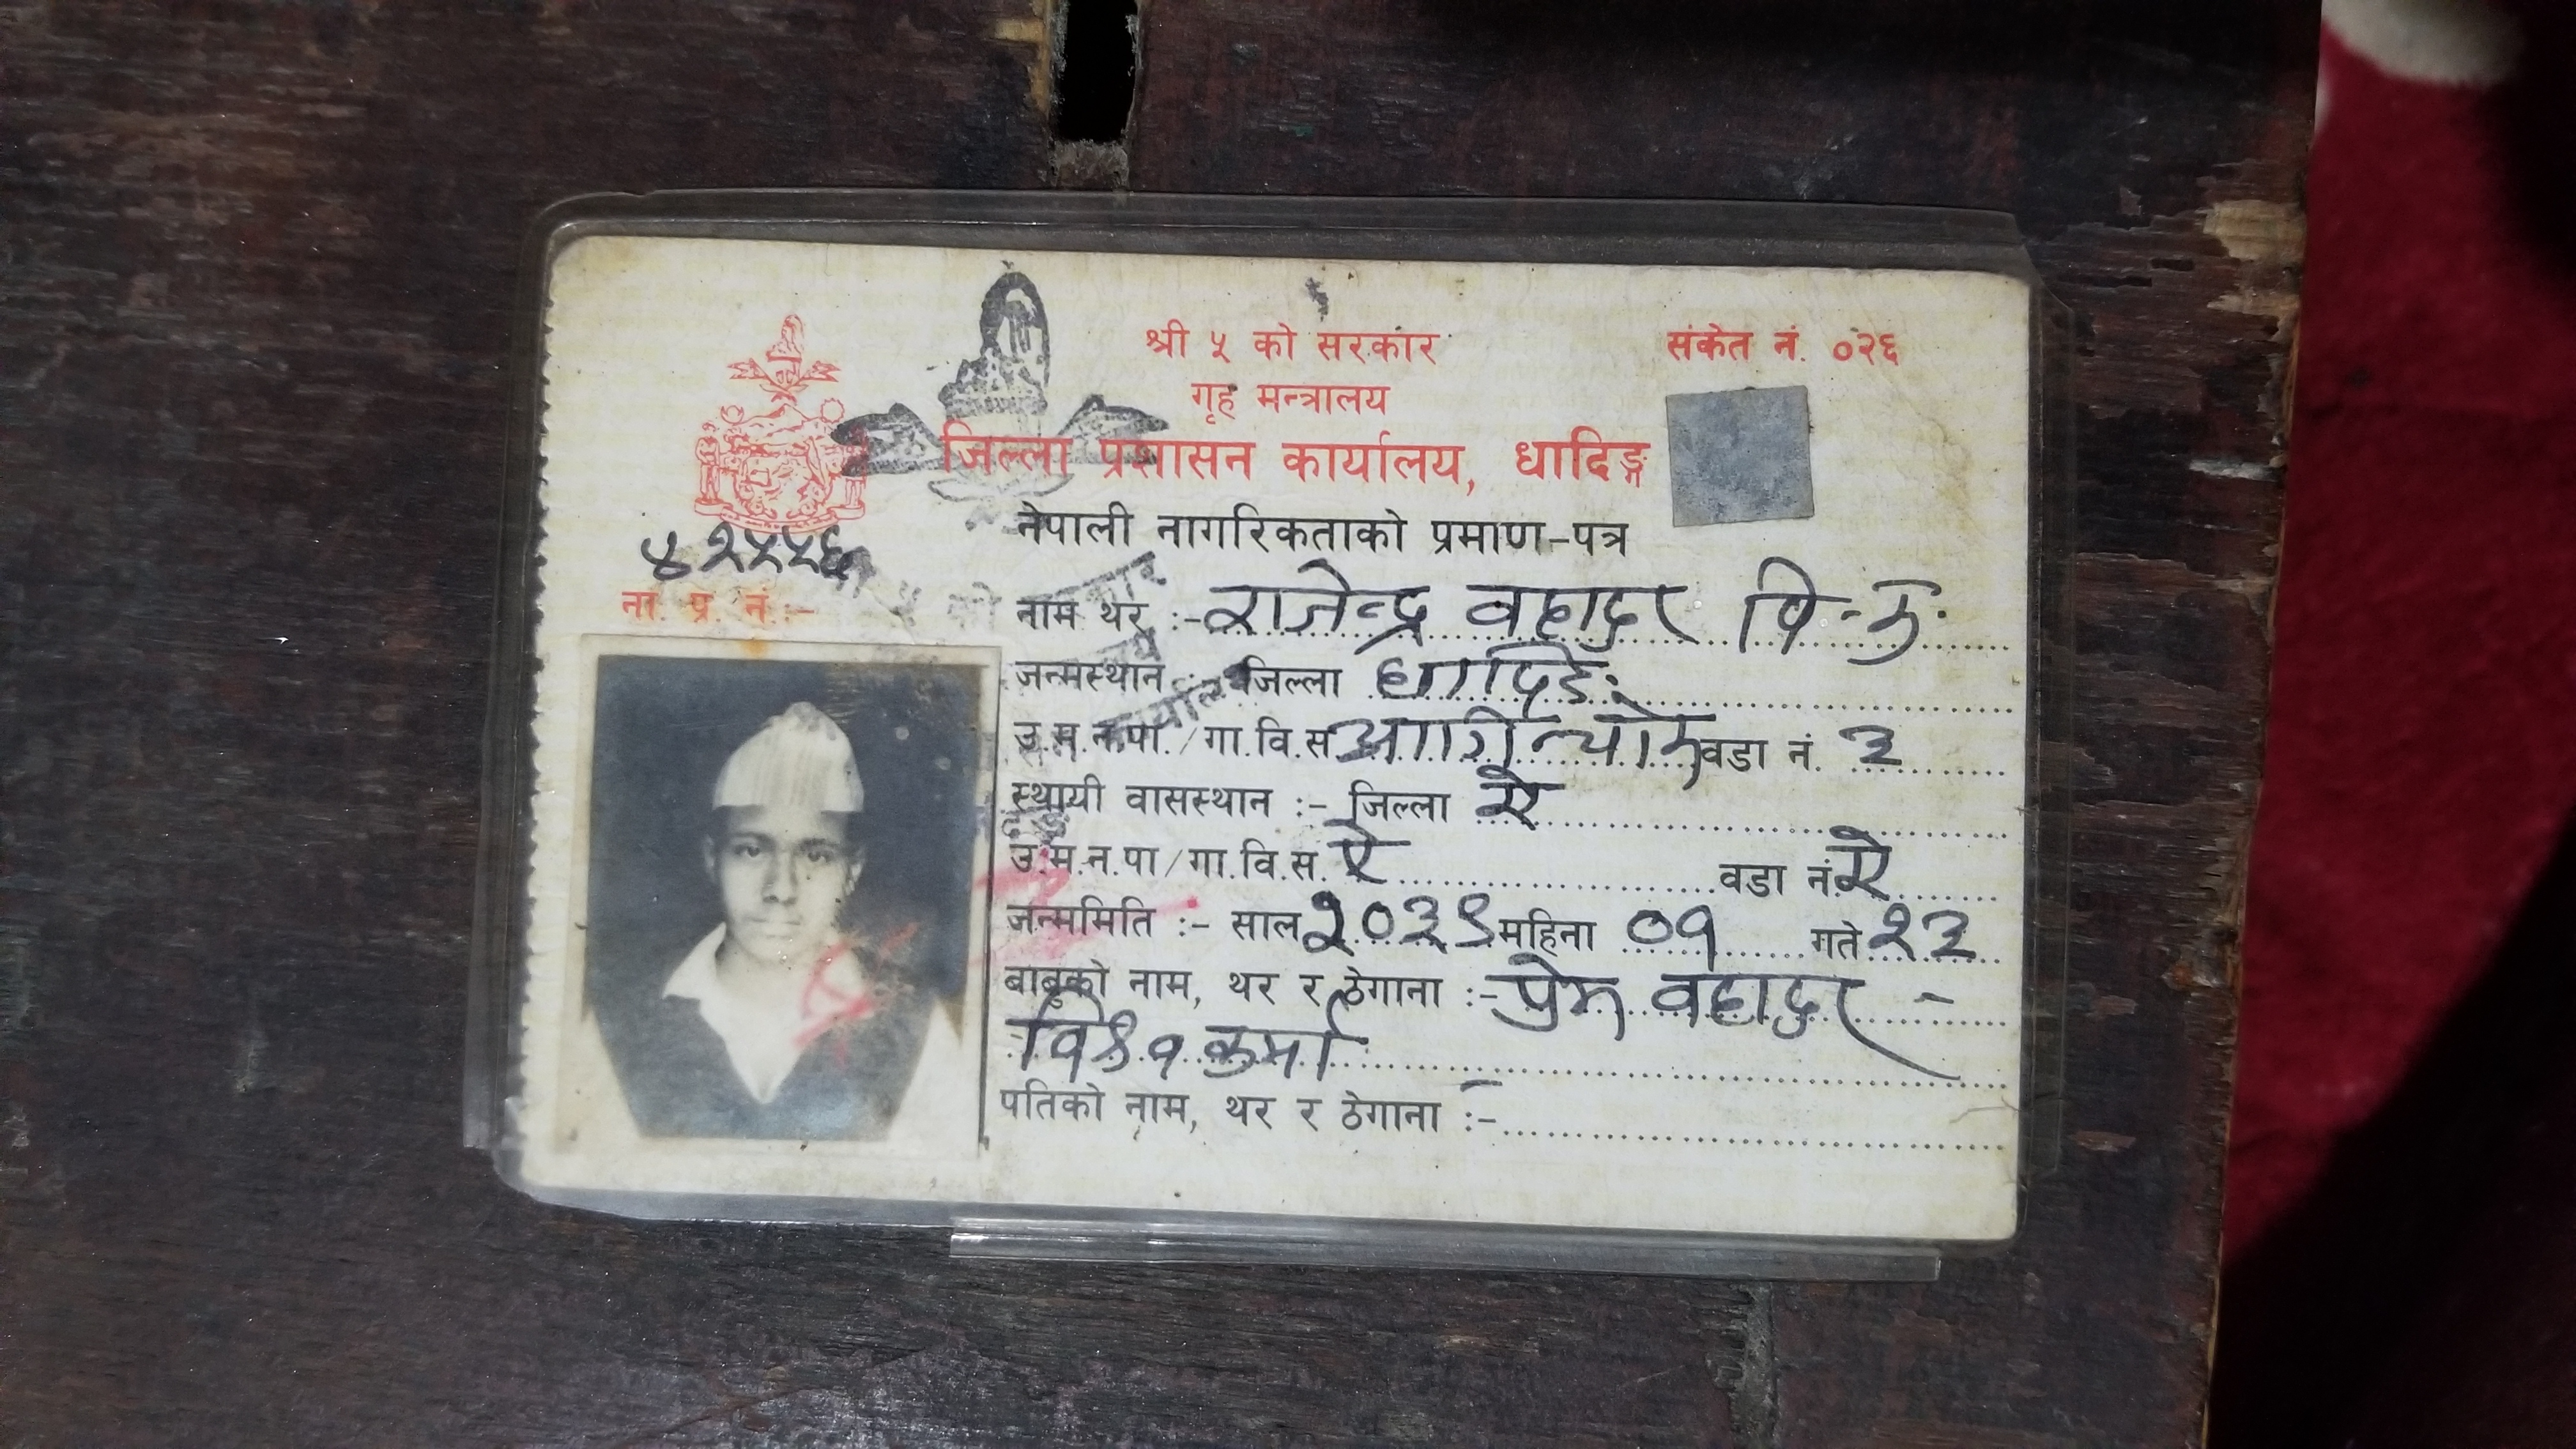 श्री ५ को सरकार
संकेत नं. ०२६
गृह मन्त्रालय
जिल्ला प्रशासन कार्यालय, धादिङ्ग
नेपाली नागरिकताको प्रमाण-पत्र
ना. प्र. नं. :-
नाम थर :- राजेन्द्र वहादुर वि.क.
जन्मस्थान :- जिल्ला धादिङ
उ.म.न.पा./गा.वि.स. वडा नं. ३
स्थायी वासस्थान :- जिल्ला ऐ
उ.म.न.पा/गा.वि.स. ऐ वडा नं. ऐ
जन्ममिति :- साल २०३९ महिना ०१ गते १३
बाबुको नाम, थर र ठेगाना :- प्रेम वहादुर -
विश्वकर्मा
पतिको नाम, थर र ठेगाना :-